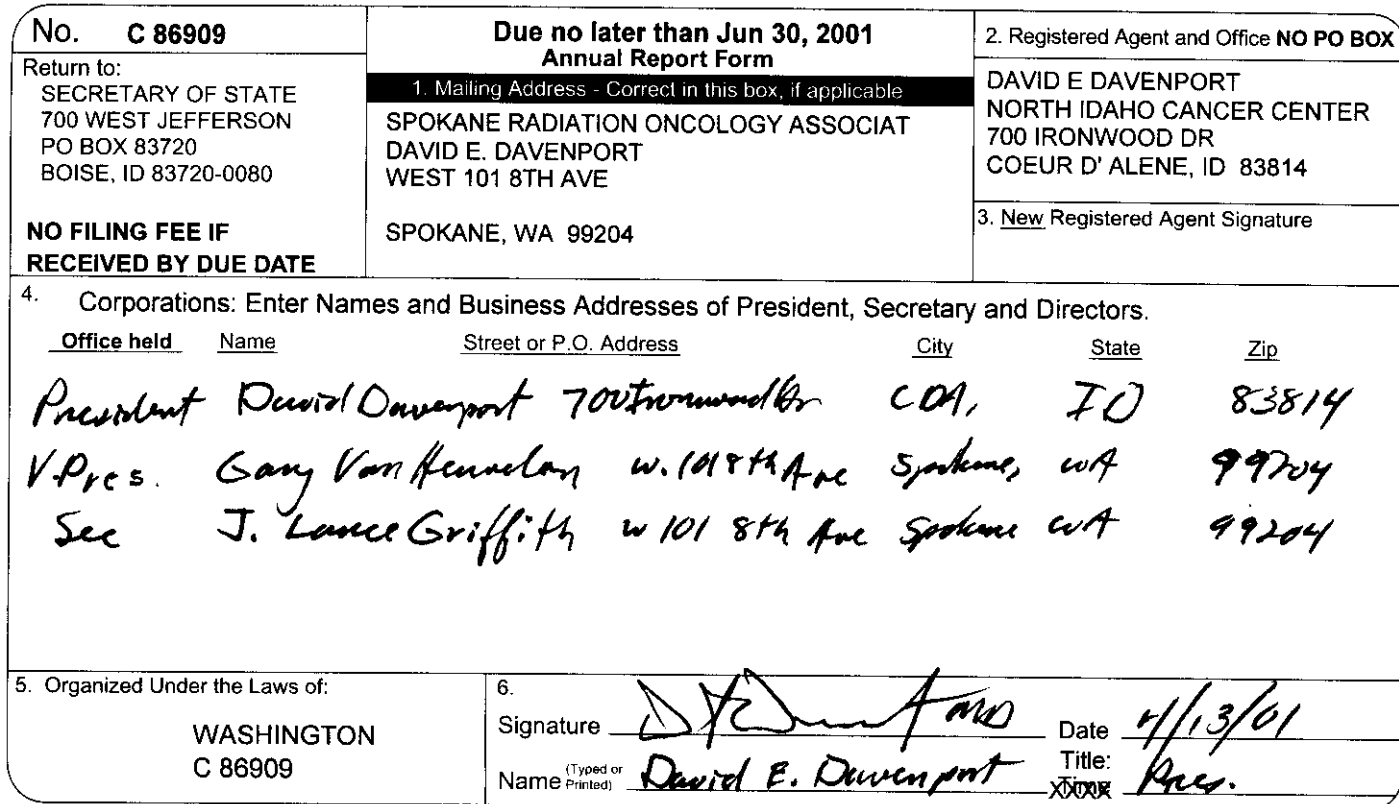 No. C 86909
Return to:
SECRETARY OF STATE
700 WEST JEFFERSON
PO BOX 83720
BOISE, ID 83720-0080
NO FILING FEE IF
RECEIVED BY DUE DATE
Due no later than Jun 30, 2001
Annual Report Form
1. Mailing Address - Correct in this box, if applicable
SPOKANE RADIATION ONCOLOGY ASSOCIAT
DAVID E. DAVENPORT
WEST 101 8TH AVE
SPOKANE, WA 99204
2. Registered Agent and Office NO PO BOX
DAVID E DAVENPORT
NORTH IDAHO CANCER CENTER
700 IRONWOOD DR
COEUR D' ALENE, ID 83814
3. New Registered Agent Signature
4. Corporations: Enter Names and Business Addresses of President, Secretary and Directors.
Office held Name Street or P.O. Address City State Zip
President David Davenport 700 Ironwood Dr CDA, ID 83814
V.Pres. Gary Van w. 101 8th Ave Spokane, WA 99204
Sec J. Lance Griffith w 101 8th Ave Spokane WA 99204
5. Organized Under the Laws of:
WASHINGTON
C 86909
6.
Signature MD Date 4/13/01
Name (Typed or Printed) David E. Davenport Title: Pres.